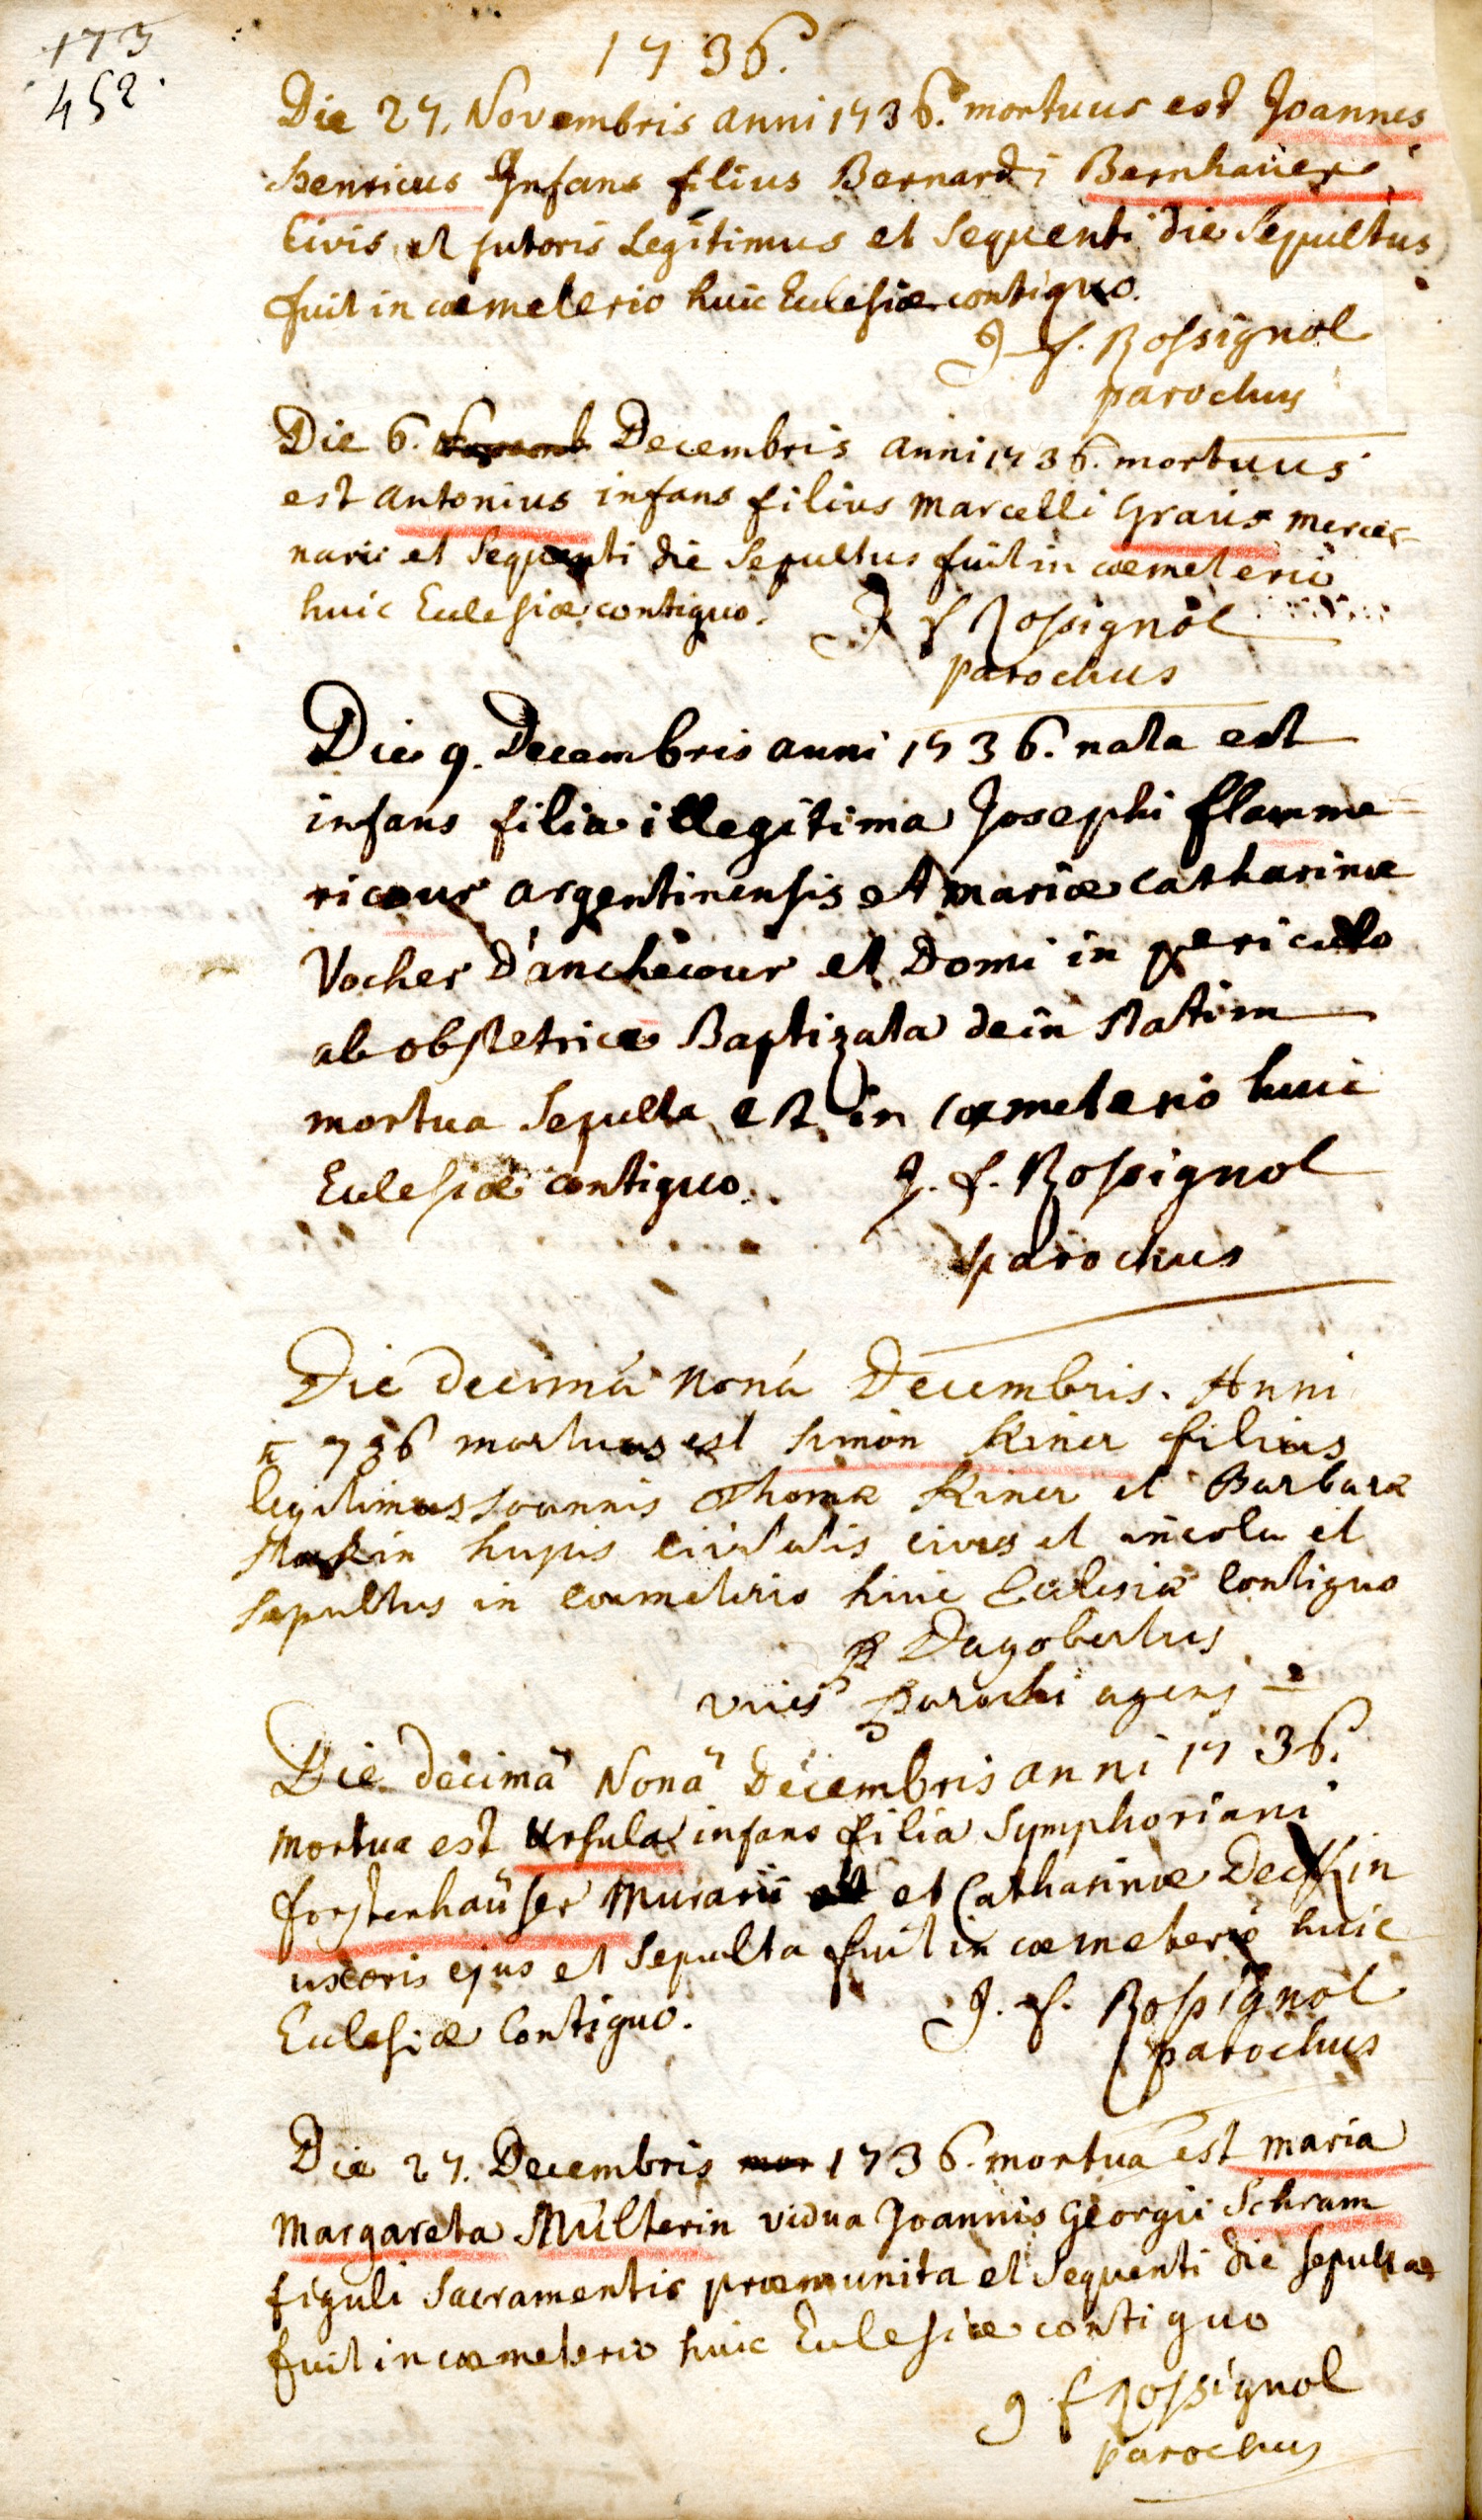 173
452.
1736.
Die 27. Novembris anni 1736. mortuus est Joannes
henricus Infans filius Bernardi Bernhauer
Civis et sutoris Legitimus et sequenti die sepultus
fuit in coemeterio huic Ecclesiæ contiguo.
J. f. Rossignol
parochus
Die 6. Decembris anni 1736. mortuus
est antonius infans filius marcelli Graus mercen-
narii et sequenti die sepultus fuit in coemeterio
huic Ecclesiæ contiguo. J f Rossignol
parochus
Die 9. Decembris anni 1736. nata est
infans filia illegitima Josephi flamme
ricour argentinensis et mariæ catharinæ
Vocher D'anchecour et Domi in periculo
ab obstetrice Baptizata dein statim
mortua sepulta est in coemeterio huic
Ecclesiæ contiguo. J. f. Rossignol
parochus
Die decimá noná Decembris. Anni
1736 mortuus est simon Kiner filius
legitimus Joannis Thomæ Kiner et Barbaræ
hujus civitatis cives et incola et
sepultus in coemeterio huic Ecclesiæ contiguo
P Dagobertus
vices Parochi agens
Die decimâ Nonâ Decembris anni 1736.
mortua est Ursula infans filia Symphoriani
forstenhaüser Murarii et Catharinæ
uxoris ejus et sepulta fuit in coemeterio huic
Ecclesiæ Contiguo. J. f. Rossignol
parochus
Die 27. Decembris mor 1736. mortua est maria
Margareta Mülterin vidua Joannis Georgii Schram
figuli sacramentis præmunita et sequenti die sepulta
fuit in coemeterio huic Ecclesiæ contiguo
J f Rossignol
parochus